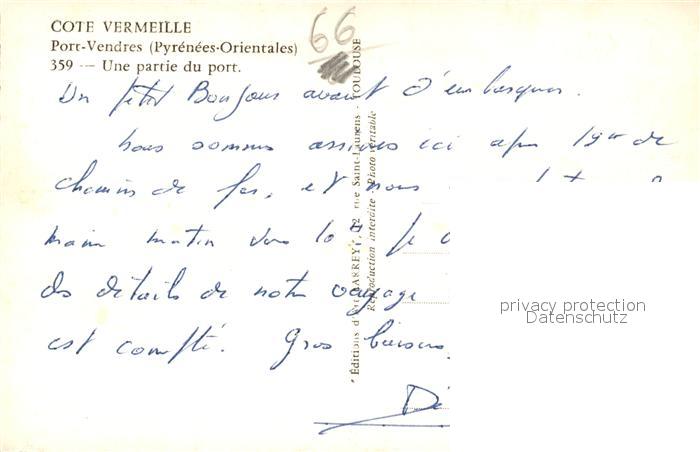 COTE VERMEILLE
Port-Vendres (Pyrénées-Orientales)
359 — Une partie du port.
66
Un petit Bonjour avant d'embarquer.
Nous sommes arrivés ici après 19 de
chemin de fer, et nous
main matin vers 10 H Je
des détails de notre voyage
est compté. Gros baisers
"Éditions d'Art 12 rue Saint-Laurens - TOULOUSE
Reproduction interdite Photo véritable
privacy protection
Datenschutz